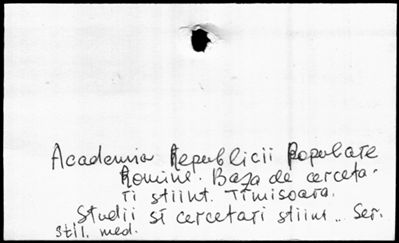 Academia Republicii Populare
Romine. Baza de cerceta-
ri stiint. Timisoara.
Studii si cercetari stiint.. Ser.
stil. med.